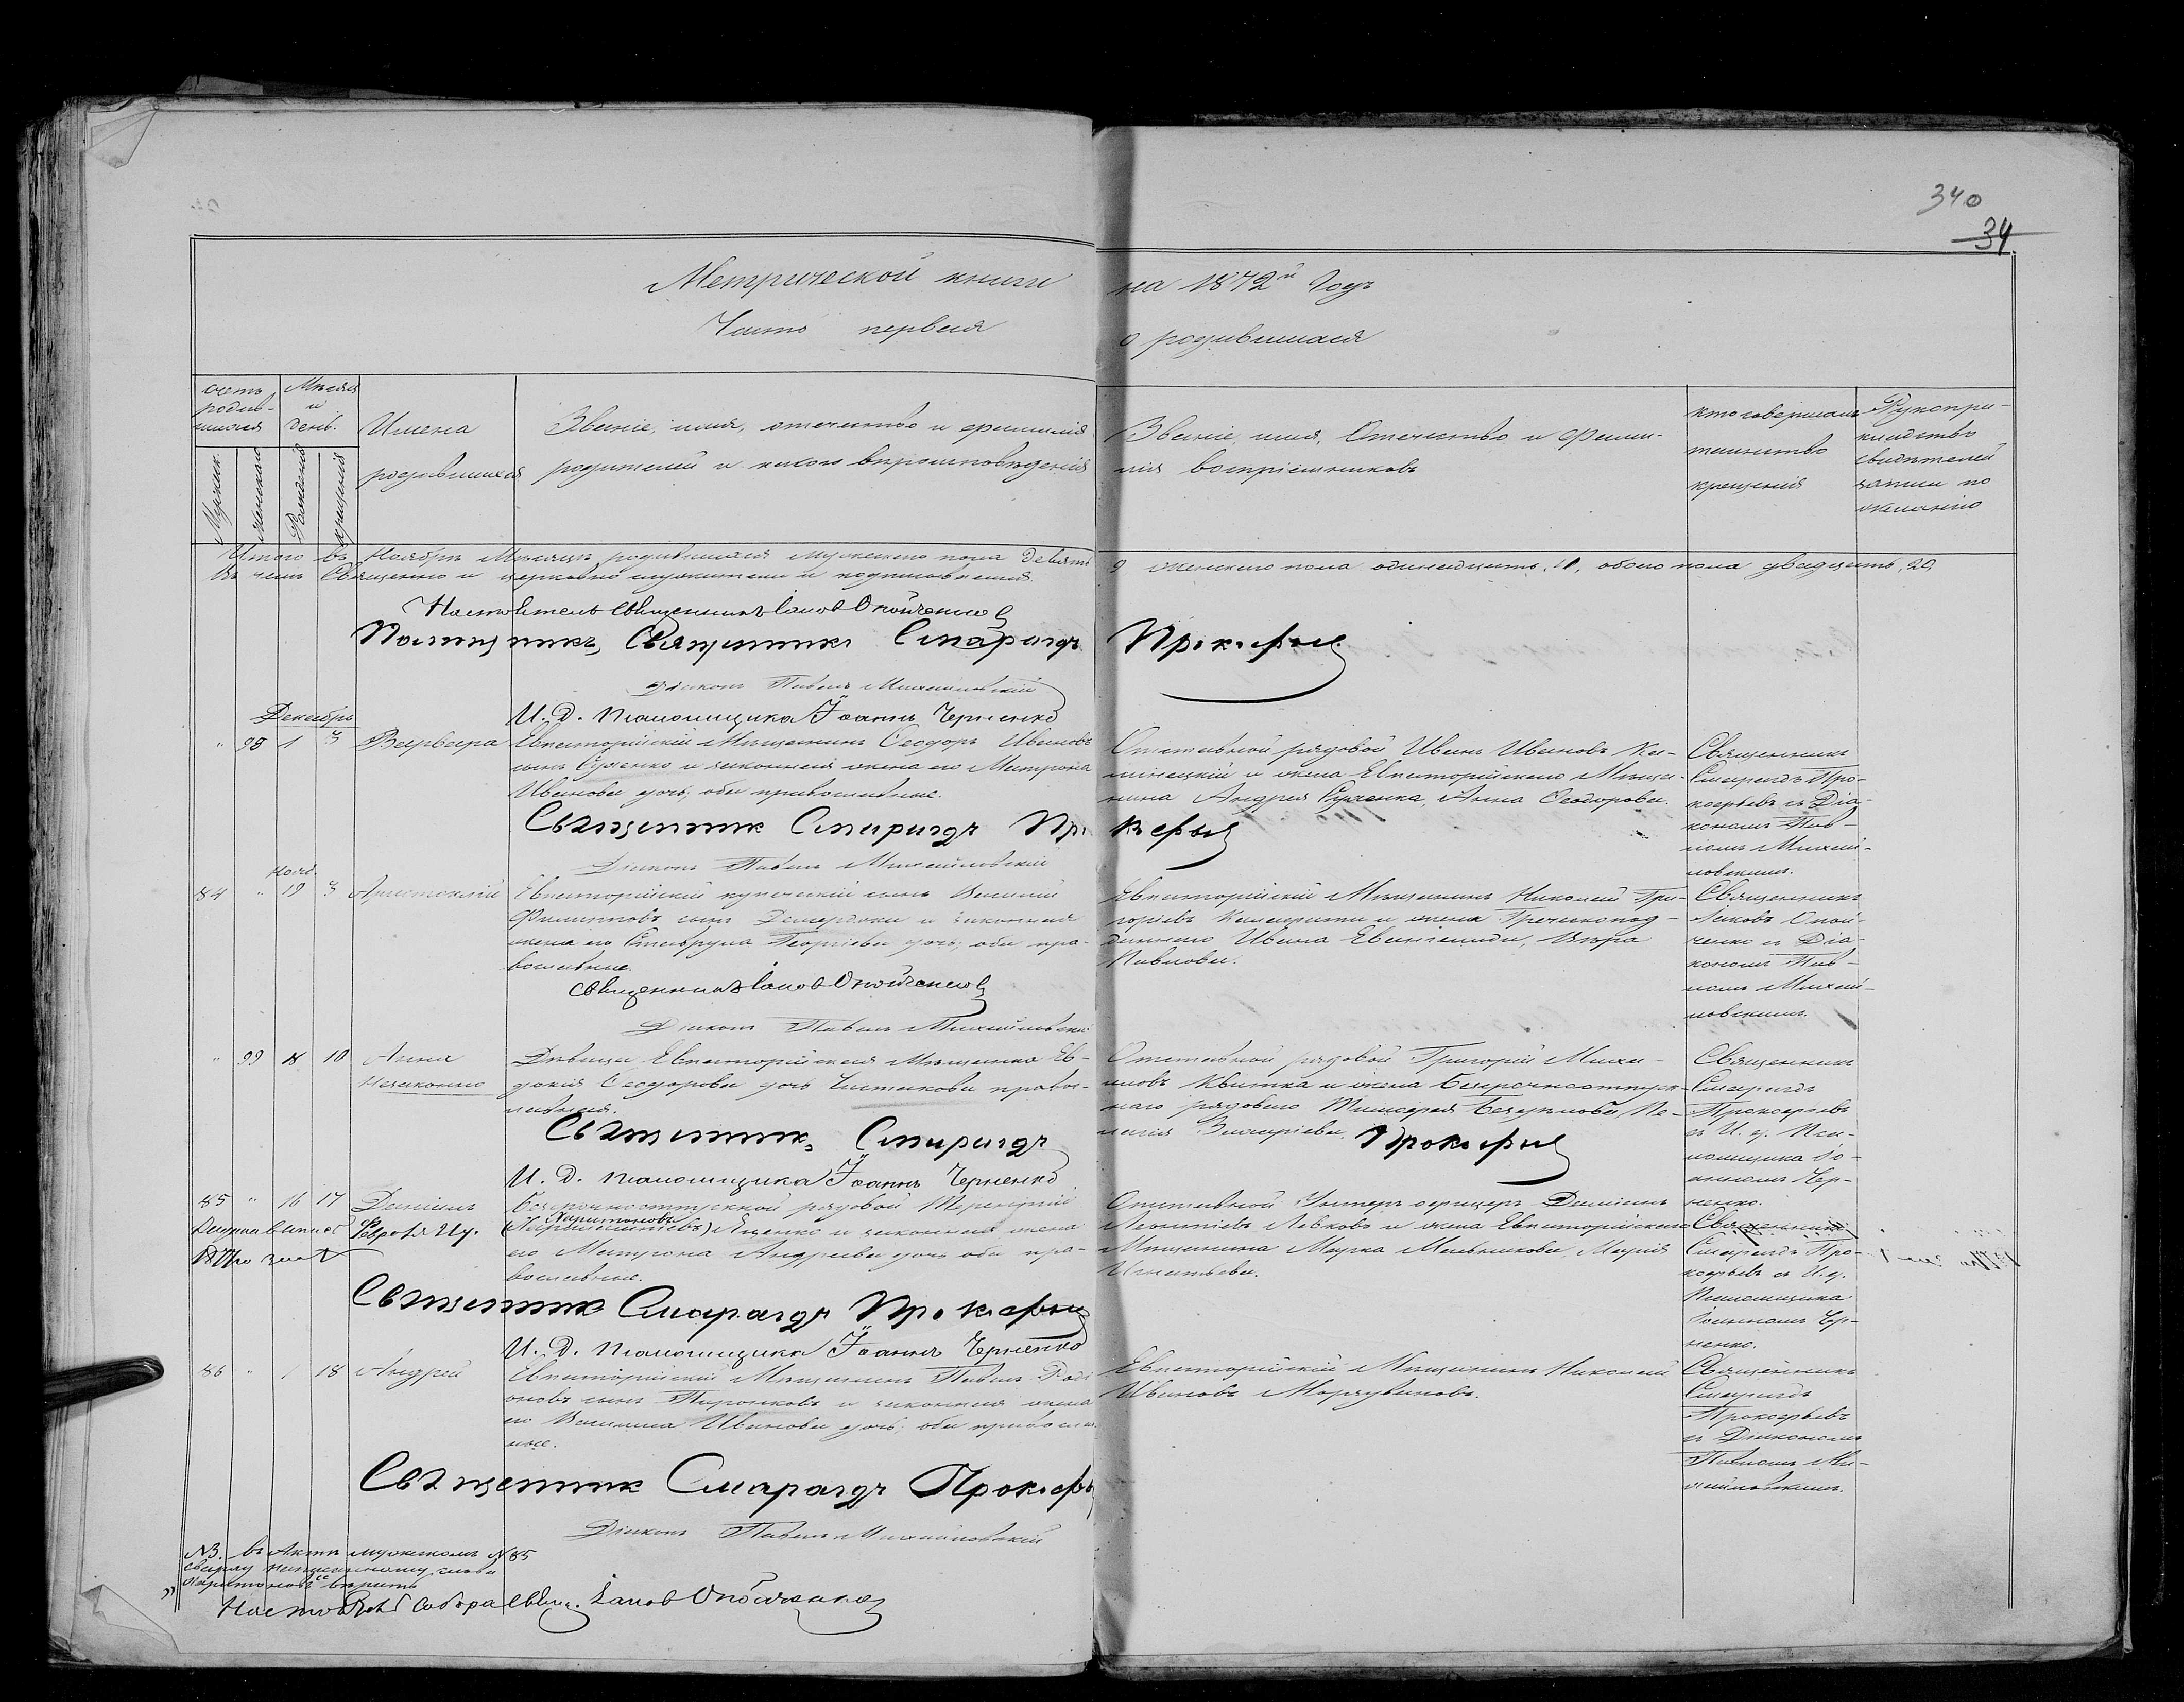 340
34
Метрической книги на 1872й Годъ
Часть первая о родившихся
счетъ родив-шихся
Мѣсяцъ и день.
Имена родившихся
Званіе, имя, отчество и фамилія
родителей и какого вѣроисповѣданія
Званіе, имя, Отчество и фами-
лія воспріемниковъ
кто совершалъ
таинство
крещенія
Рукопри-
кладство
свидѣтелей
записи по
желанію
Мужеска.
Женска
Рожденія
крещенія
Итого въ Ноябрѣ Мѣсяцѣ родившихся мужескаго пола девять 9 женскаго пола одинадцать, 11, обоего пола двадцать, 20
Въ чемъ Священно и церковно служители и подписываемся
Настоятель священникъ Іаковъ Опойченко
Помощникъ, Священникъ Смарагдъ Прокофьев
Діаконъ Павелъ Михайловскій
И. Д. Псаломщика Іоаннъ Черненко
Декабрь
" 98 1 3 Варвара
Евпаторійскій Мѣщанинъ Ѳеодоръ Ивановъ
сынъ Сученко и законная жена его Матрона
Иванова дочь; оба православные.
Отставной рядовой Иванъ Ивановъ Ка-
линецкій и жена Евпаторійскаго Мѣща-
нина Андрея Сученка, Анна Ѳеодорова.
Священникъ
Смарагдъ Про-
кофьевъ съ Діа-
кономъ Пав-
ломъ Михай-
ловскимъ.
Священник Смарагдъ Прокофьев
Діаконъ Павелъ Михайловскій
Нояб.
84 " 19 3
Евпаторійскій купеческій сынъ Василій
Филипповъ сынъ Демерджи и законная
жена его Ставрула Георгіева дочь; оба пра-
вославные.
Евпаторійскій Мѣщанинъ Николай Гри-
горіевъ и жена Греческопод-
даннаго Ивана Евангелиди, Вѣра
Павлова.
Священникъ
Іаковъ Опой-
ченко съ Діа-
кономъ Пав-
ломъ Михай-
ловскимъ.
Священникъ Іаковъ Опойченко
Діаконъ Павелъ Михайловскій
" 99 8 10 Анна
Незаконно
Дѣвица Евпаторійская Мѣщанка Ев-
докія Ѳеодорова дочь Чистякова правос-
лавная.
Отставной рядовой Григорій Миха-
иловъ Квитка и жена безсрочноотпуск-
наго рядоваго Тимофея Пе-
лагія Захаріева.
Священникъ
Смарагдъ
Прокофьевъ
съ И. д. Пса-
ломщика Іо-
анномъ Чер-
ненко.
Священник, Смарагдъ Прокофьев
И. Д. Псаломщика Іоаннъ Черненко
85 " 16 17 Даніилъ
Безсрочноотпускной рядовой Терентій
Харитоновъ
Яценко и законная жена
его Матрона Андреева дочь оба пра-
вославные.
Отставной Унтеръ офицеръ Даніилъ
Леонтіевъ Левковъ и жена Евпаторійскаго
Мѣщанина Марка Мельникова, Марія
Игнатьева.
Священникъ
Смарагдъ Про-
кофьевъ съ И. д.
Псаломщика
Іоанномъ Чер-
ненко.
Священник Смарагдъ Прокофьев
И. Д. Псаломщика Іоаннъ Черненко
86 " 1 18 Андрей
Евпаторійскій Мѣщанинъ Павелъ Роді-
оновъ сынъ и законная жена
его Василиса Иванова дочь, оба православ-
ные.
Евпаторійскій Мѣщанинъ Николай
Ивановъ
Священникъ
Смарагдъ
Прокофьевъ
съ Діакономъ
Павломъ Ми-
хайловскимъ.
Священник Смарагдъ Прокофьев
Діаконъ Павелъ Михайловскій
NB. въ Актѣ мужескомъ № 85
сверху написанному слову
"Харитоновъ" вѣрить
Настоятель Собора Свящ. Іаковъ Опойченко